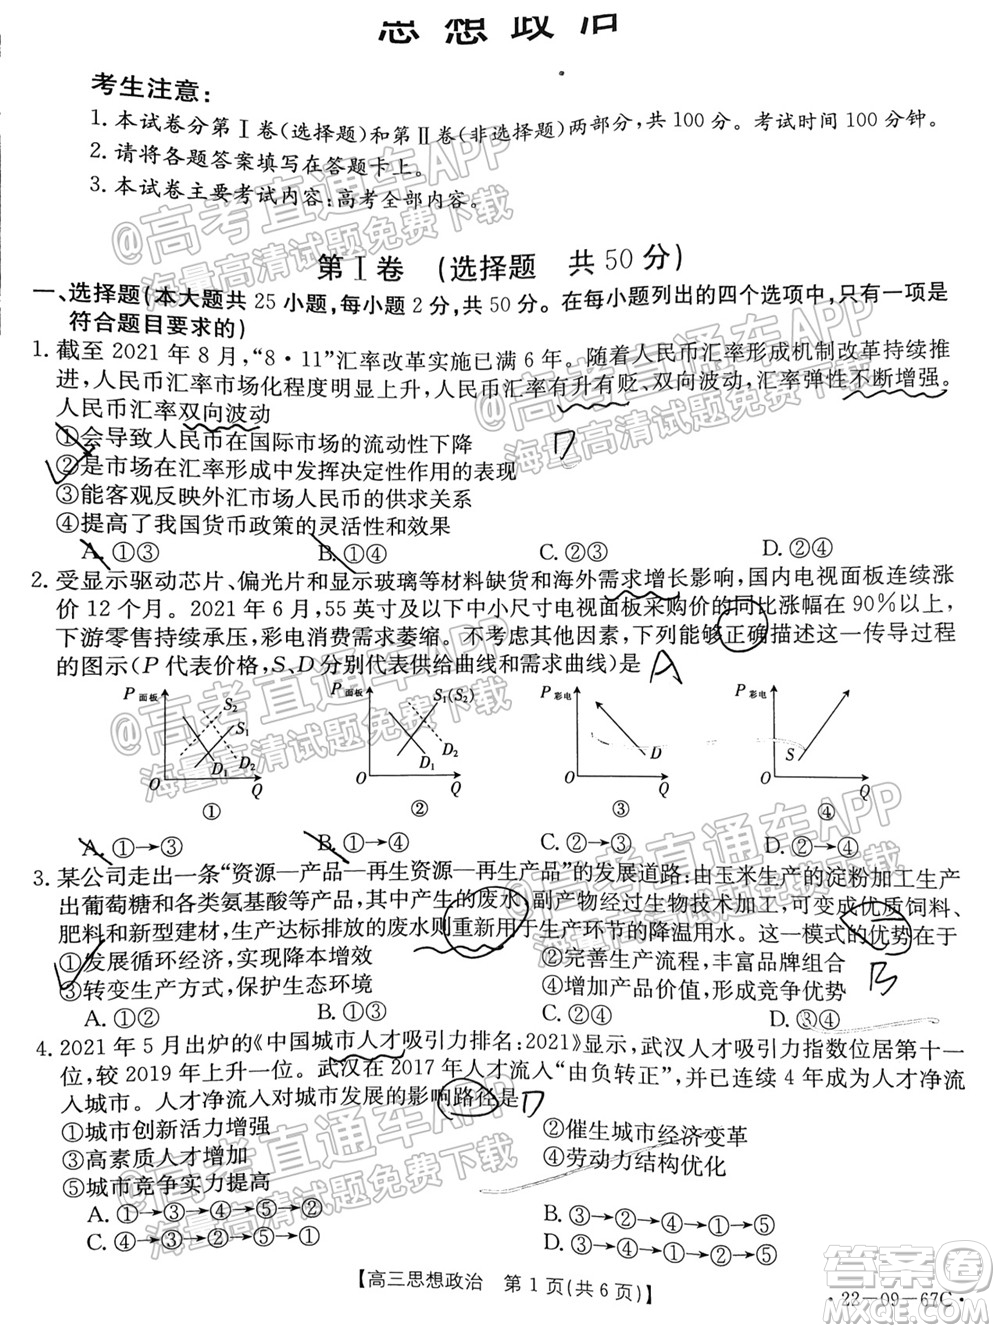 思想政治
考生注意:
1. 本试卷分第Ⅰ卷(选择题)和第Ⅱ卷(非选择题)两部分,共100分。考试时间100分钟。
2. 请将各题答案填写在答题卡上。
3. 本试卷主要考试内容:高考全部内容。
第Ⅰ卷 (选择题 共50分)
一、选择题(本大题共25小题,每小题2分,共50分。在每小题列出的四个选项中,只有一项是
符合题目要求的)
1. 截至2021年8月,“8·11”汇率改革实施已满6年。随着人民币汇率形成机制改革持续推
进,人民币汇率市场化程度明显上升,人民币汇率有升有贬、双向波动,汇率弹性不断增强。
人民币汇率双向波动
①会导致人民币在国际市场的流动性下降
D
②是市场在汇率形成中发挥决定性作用的表现
③能客观反映外汇市场人民币的供求关系
④提高了我国货币政策的灵活性和效果
A. ①③ B. ①④ C. ②③ D. ②④
2. 受显示驱动芯片、偏光片和显示玻璃等材料缺货和海外需求增长影响,国内电视面板连续涨
价12个月。2021年6月,55英寸及以下中小尺寸电视面板采购价的同比涨幅在90%以上,
下游零售持续承压,彩电消费需求萎缩。不考虑其他因素,下列能够正确描述这一传导过程
的图示(P代表价格,S、D分别代表供给曲线和需求曲线)是 A
P面板 S₂ S₁ D₂ D₁ O Q ①
P面板 S₁(S₂) D₂ D₁ O Q ②
P彩电 D O Q ③
P彩电 S O Q ④
A. ①→③ B. ①→④ C. ②→③ D. ②→④
3. 某公司走出一条“资源—产品—再生资源—再生产品”的发展道路:由玉米生产的淀粉加工生产
出葡萄糖和各类氨基酸等产品,产生的废水、副产物经过生物技术加工,可变成优质饲料、
肥料和新型建材,生产达标排放的废水则重新用于生产环节的降温用水。这一模式的优势在于
①发展循环经济,实现降本增效 ②完善生产流程,丰富品牌组合
③转变生产方式,保护生态环境 ④增加产品价值,形成竞争优势
B
A. ①② B. ①③ C. ②④ D. ③④
4. 2021年5月出炉的《中国城市人才吸引力排名:2021》显示,武汉人才吸引力指数位居第十一
位,较2019年上升一位。武汉在2017年人才流入“由负转正”,并已连续4年成为人才净流
入城市。人才净流入对城市发展的影响路径是 D
①城市创新活力增强 ②催生城市经济变革
③高素质人才增加 ④劳动力结构优化
⑤城市竞争实力提高
A. ①→③→④→⑤→② B. ③→②→④→①→⑤
C. ④→③→①→②→⑤ D. ③→④→①→②→⑤
【高三思想政治 第1页(共6页)】
·22-09-67C·
@高考直通车APP
海量高清试题免费下载
@高考直通车APP
海量高清试题免费下载
@高考直通车APP
海量高清试题免费下载
@高考直通车APP
海量高清试题免费下载
@高考直通车APP
海量高清试题免费下载
答案圈
MXQE.COM